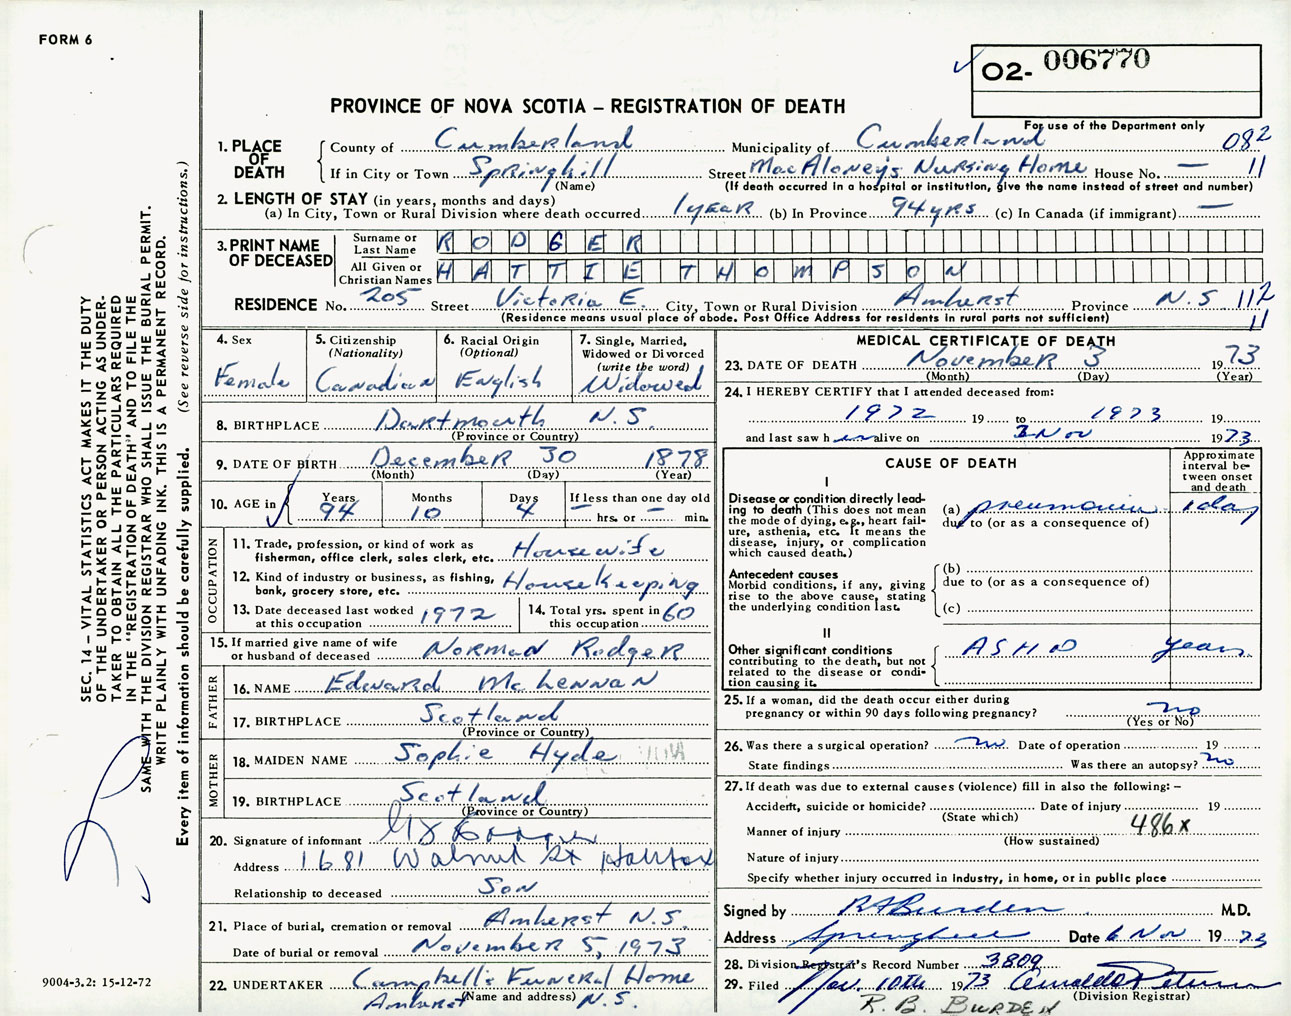 FORM 6
O2- 006770
PROVINCE OF NOVA SCOTIA – REGISTRATION OF DEATH
For use of the Department only
1. PLACE OF DEATH
County of Cumberland Municipality of Cumberland 082
If in City or Town Springhill Street MacAloney's Nursing Home House No. — 11
(Name) (If death occurred in a hospital or institution, give the name instead of street and number)
2. LENGTH OF STAY (in years, months and days)
(a) In City, Town or Rural Division where death occurred 1 year (b) In Province 94 yrs (c) In Canada (if immigrant) —
3. PRINT NAME OF DECEASED
Surname or Last Name RODGER
All Given or Christian Names HATTIE THOMPSON
RESIDENCE No. 205 Street Victoria E. City, Town or Rural Division Amherst Province N.S 112
(Residence means usual place of abode. Post Office Address for residents in rural parts not sufficient) 11
4. Sex
Female
5. Citizenship
(Nationality)
Canadian
6. Racial Origin
(Optional)
English
7. Single, Married,
Widowed or Divorced
(write the word)
Widowed
8. BIRTHPLACE Dartmouth N.S.
(Province or Country)
9. DATE OF BIRTH December 30 1878
(Month) (Day) (Year)
10. AGE in
Years Months Days If less than one day old
94 10 4 — hrs. or — min.
OCCUPATION
11. Trade, profession, or kind of work as
fisherman, office clerk, sales clerk, etc. Housewife
12. Kind of industry or business, as fishing,
bank, grocery store, etc. Housekeeping
13. Date deceased last worked
at this occupation 1972
14. Total yrs. spent in
this occupation 60
15. If married give name of wife
or husband of deceased Norman Rodger
FATHER
16. NAME Edward McLennan
17. BIRTHPLACE Scotland
(Province or Country)
MOTHER
18. MAIDEN NAME Sophie Hyde
19. BIRTHPLACE Scotland
(Province or Country)
20. Signature of informant
Address 1681 Walnut St Halifax
Relationship to deceased Son
21. Place of burial, cremation or removal Amherst N.S.
Date of burial or removal November 5, 1973
22. UNDERTAKER Campbell's Funeral Home
Amherst (Name and address) N.S.
MEDICAL CERTIFICATE OF DEATH
23. DATE OF DEATH November 3 1973
(Month) (Day) (Year)
24. I HEREBY CERTIFY that I attended deceased from:
1972 19 to 1973 19
and last saw her alive on 3 Nov 1973
CAUSE OF DEATH
Approximate
interval be-
tween onset
and death
I
Disease or condition directly lead-
ing to death (This does not mean
the mode of dying, e.g., heart fail-
ure, asthenia, etc. It means the
disease, injury, or complication
which caused death.)
(a) pneumonia 1 day
due to (or as a consequence of)
Antecedent causes
Morbid conditions, if any, giving
rise to the above cause, stating
the underlying condition last.
(b)
due to (or as a consequence of)
(c)
II
Other significant conditions
contributing to the death, but not
related to the disease or condi-
tion causing it.
ASHD years
25. If a woman, did the death occur either during
pregnancy or within 90 days following pregnancy? no
(Yes or No)
26. Was there a surgical operation? no Date of operation 19
State findings Was there an autopsy? no
27. If death was due to external causes (violence) fill in also the following: –
Accident, suicide or homicide? Date of injury 19
(State which)
Manner of injury 486x
(How sustained)
Nature of injury
Specify whether injury occurred in Industry, in home, or in public place
Signed by R A Burden M.D.
Address Springhill Date 6 Nov 1973
28. Division Registrar's Record Number 3809
29. Filed Nov. 10th 1973
(Division Registrar)
R. B. BURDEN
SEC. 14 – VITAL STATISTICS ACT MAKES IT THE DUTY
OF THE UNDERTAKER OR PERSON ACTING AS UNDER-
TAKER TO OBTAIN ALL THE PARTICULARS REQUIRED
IN THE "REGISTRATION OF DEATH" AND TO FILE THE
SAME WITH THE DIVISION REGISTRAR WHO SHALL ISSUE THE BURIAL PERMIT.
WRITE PLAINLY WITH UNFADING INK. THIS IS A PERMANENT RECORD.
Every item of information should be carefully supplied. (See reverse side for instructions.)
9004-3.2: 15-12-72